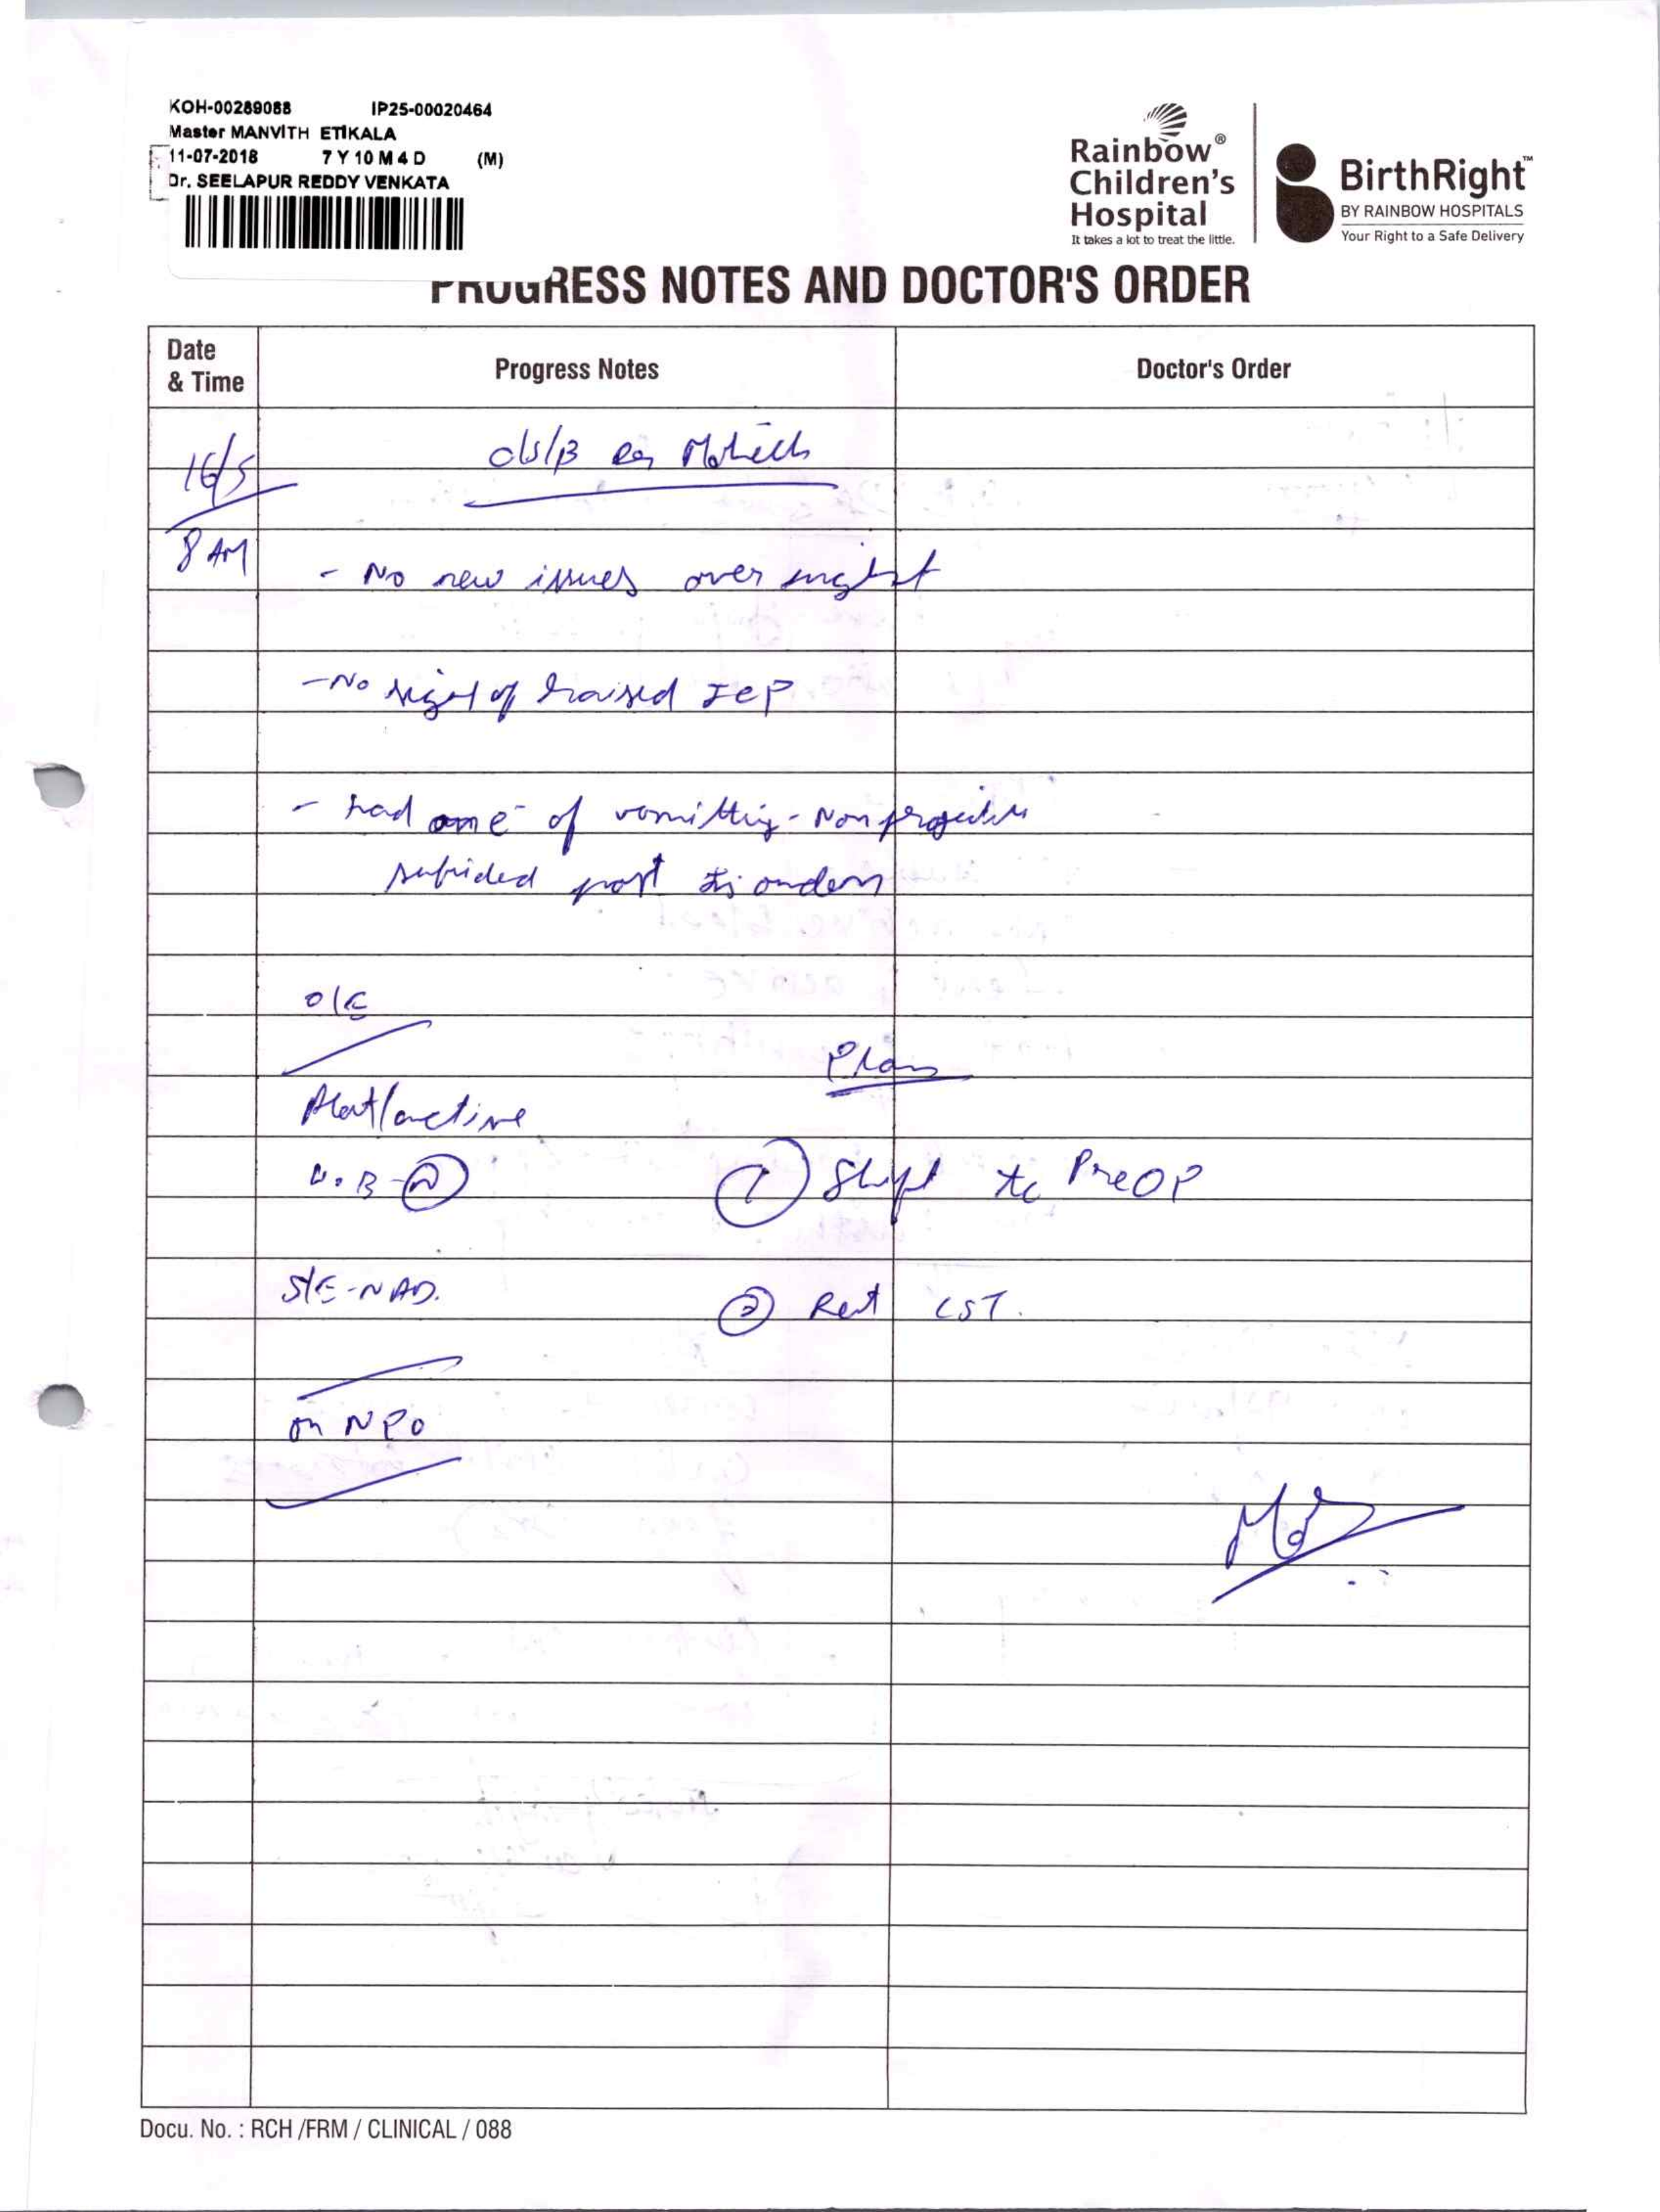 KOH-00289088 IP25-00020464
Master MANVITH ETIKALA
11-07-2018 7 Y 10 M 4 D (M)
Dr. SEELAPUR REDDY VENKATA
Rainbow®
Children's
Hospital
It takes a lot to treat the little.
BirthRight™
BY RAINBOW HOSPITALS
Your Right to a Safe Delivery
PROGRESS NOTES AND DOCTOR'S ORDER
Date
& Time
Progress Notes
Doctor's Order
16/5
c/s/B
8 AM
- No new issues over night
- No signs of raised ICP
- had one of vomitting - Non projectile
subsided post
O/E
Plan
Alert/active
(N)
① Shift to PreOP
S/E - NAD.
② Rest CST.
on NPO
Docu. No. : RCH /FRM / CLINICAL / 088